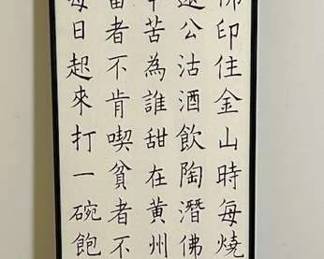 佛印住金山時每燒
遠公沽酒飲陶潛佛
辛苦為誰甜在黃州
富者不肯喫貧者不
每日起來打一碗飽